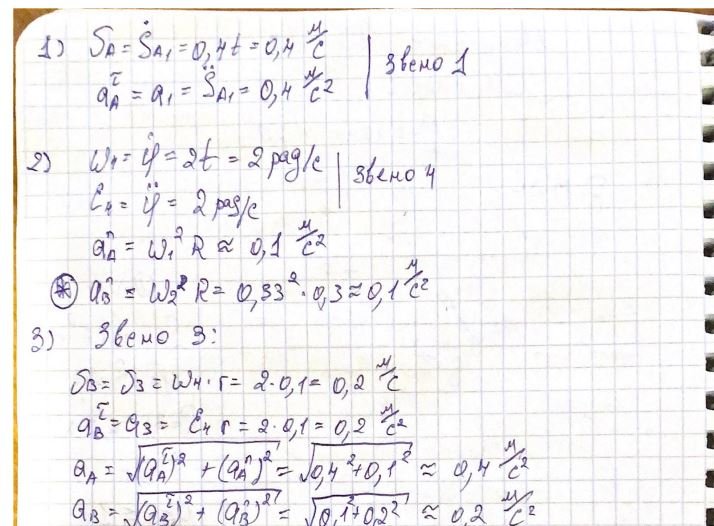 1) υA = ṠA₁ = 0,4t = 0,4 м/с
aᴬτ = a₁ = S̈A₁ = 0,4 м/с² | Звено 1
2) ω₄ = φ̇ = 2t = 2 рад/с
ε₄ = φ̈ = 2 рад/с | Звено 4
aᴬn = ω₁² R ≈ 0,1 м/с²
* aᴮn = ω₂² R = 0,33² · 0,3 ≈ 0,1 м/с²
3) Звено 3:
υB = υ3 = ω₄ · r = 2 · 0,1 = 0,2 м/с
aᴮτ = a3 = ε₄ r = 2 · 0,1 = 0,2 м/с²
aA = √((aᴬτ)² + (aᴬn)²) = √(0,4² + 0,1²) ≈ 0,4 м/с²
aB = √((aᴮτ)² + (aᴮn)²) = √(0,1² + 0,2²) ≈ 0,2 м/с²